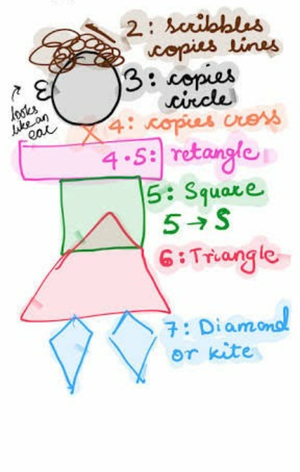 2: scribbles
copies lines
3: copies
circle
Ɛ
looks
like an
ear
4: copies cross
4.5: retangle
5: Square
5 → S
6: Triangle
7: Diamond
or kite